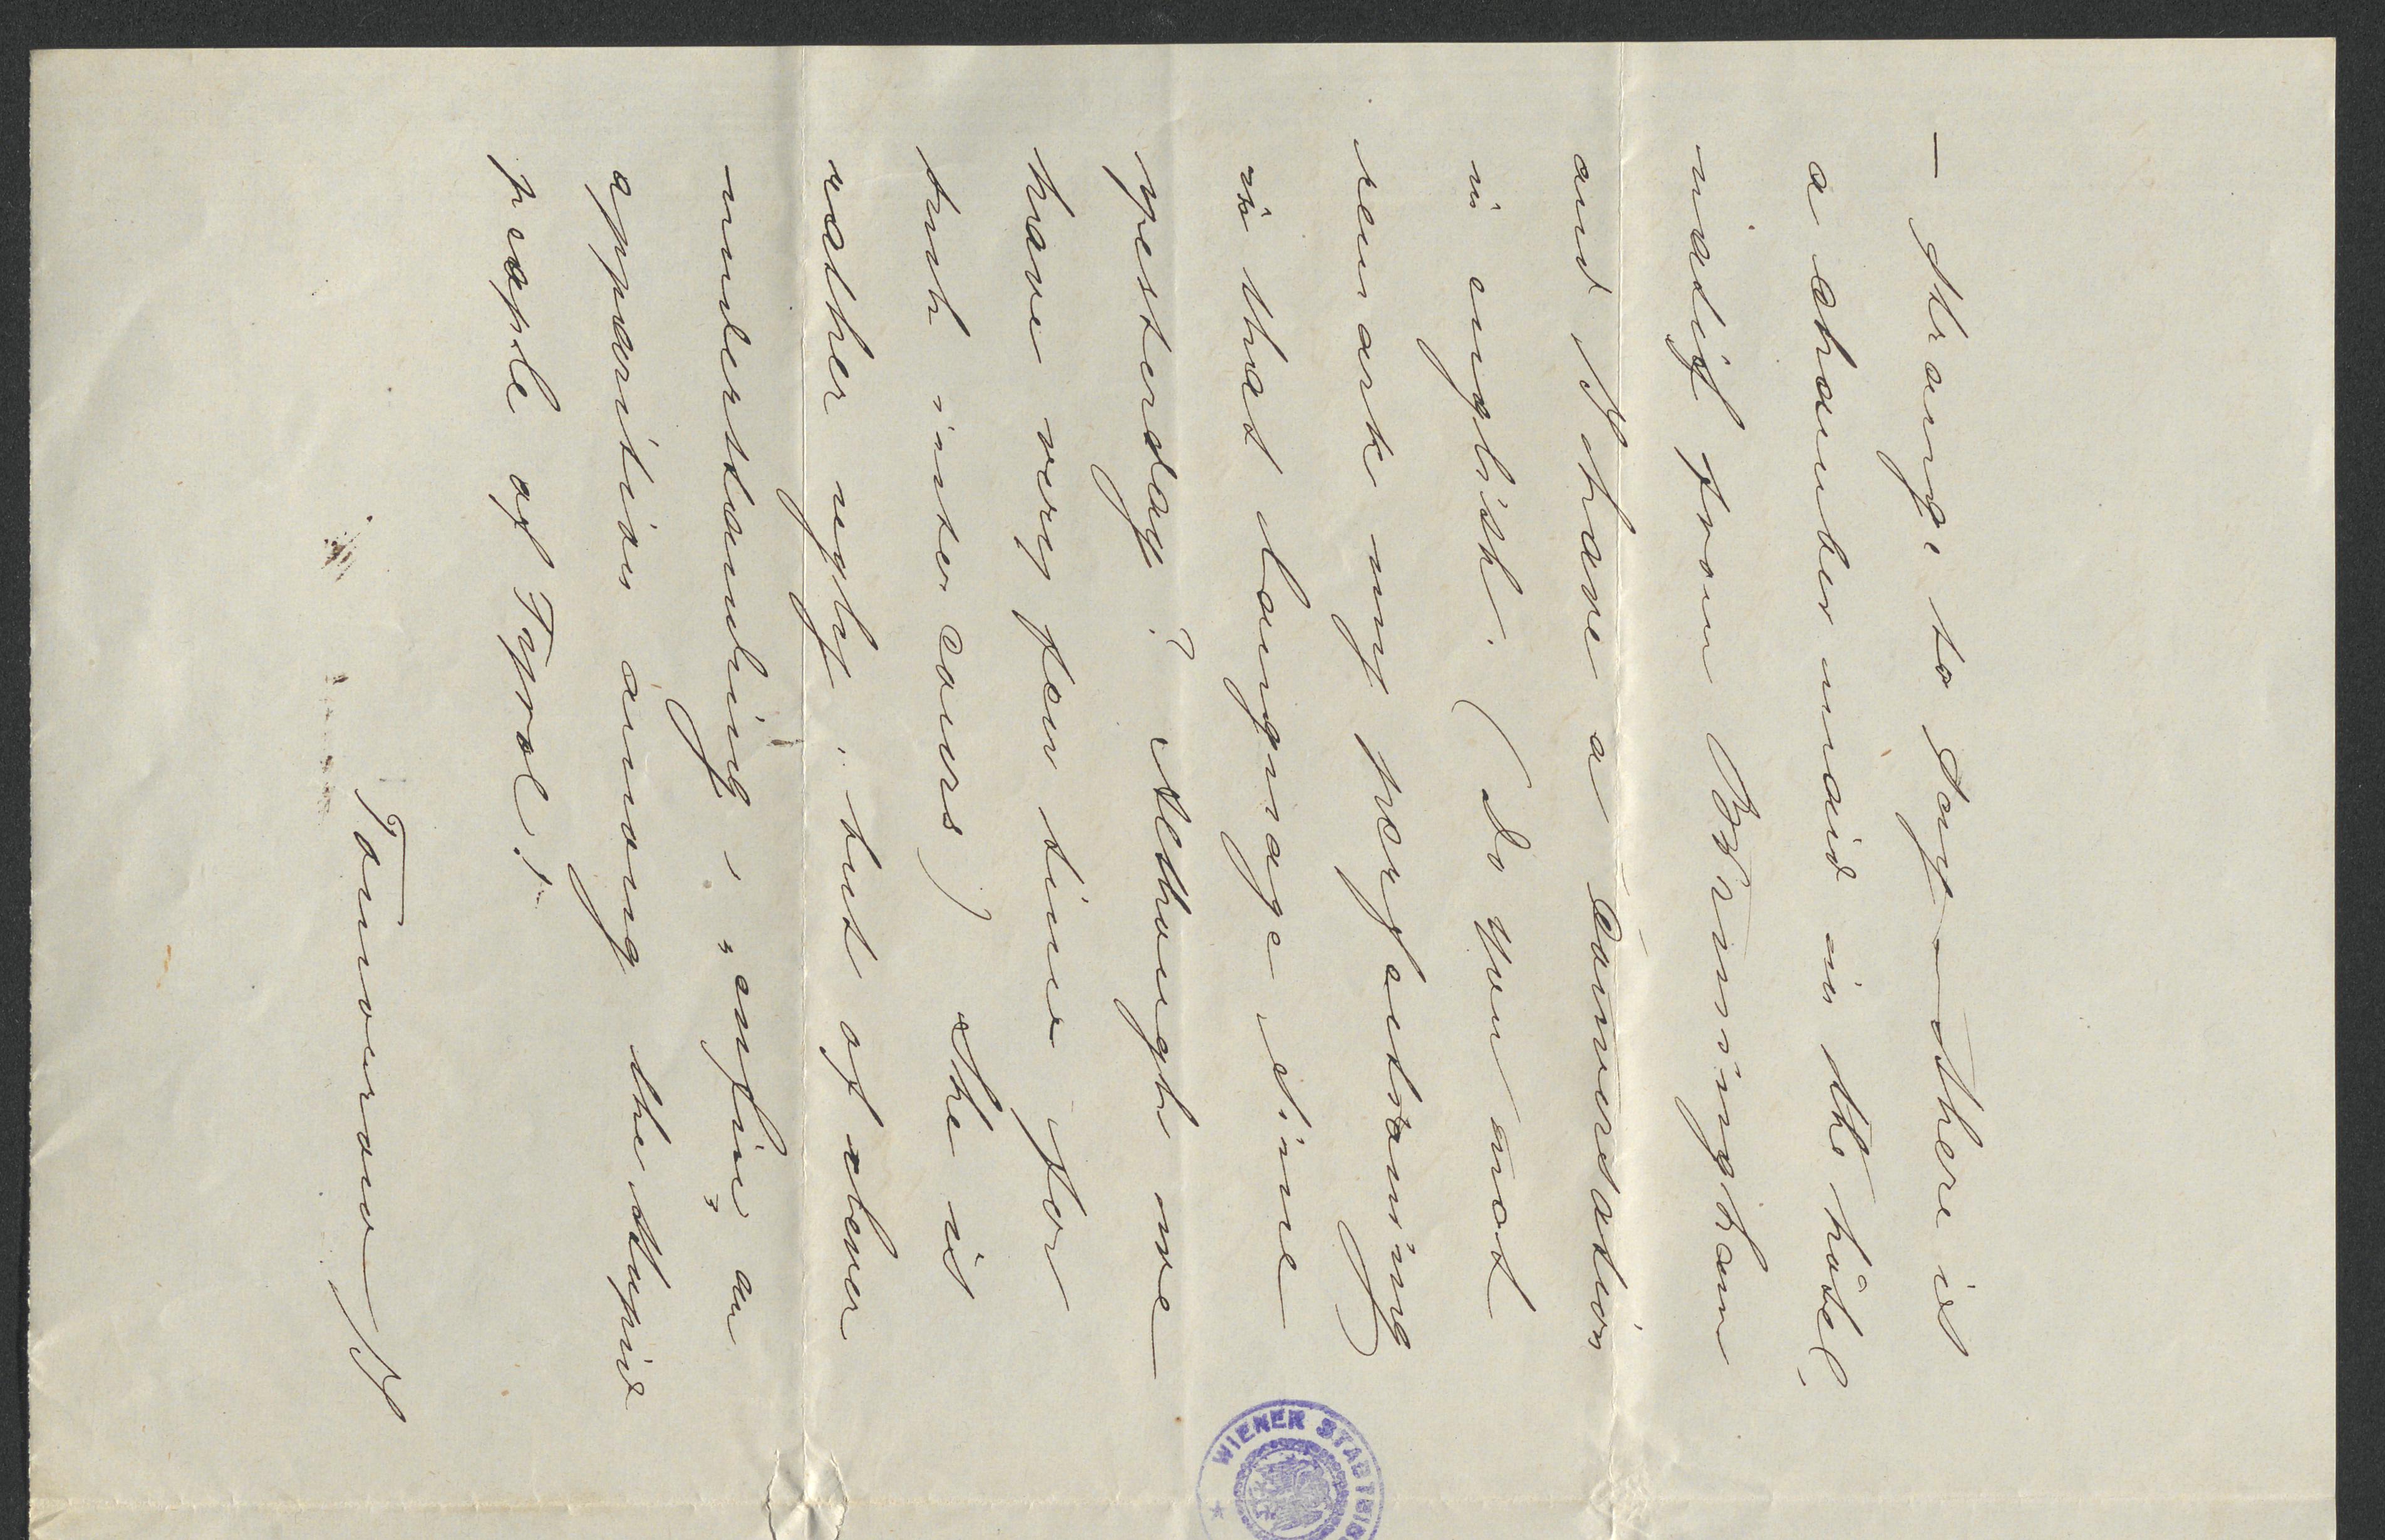 – Strange to say – there is
a chamber maid in the hôtel,
nativ from Birmingham
and I have a conversation
in english. (Do you not
remark my perfectioning
in that language since
yesterday? Although we
have very few time for
such intercours) She is
rather ugly, but of clever
understanding, „enfin" an
apparition among the stupid
people of Tyrol!
Tomorow I
WIENER STADTBIB